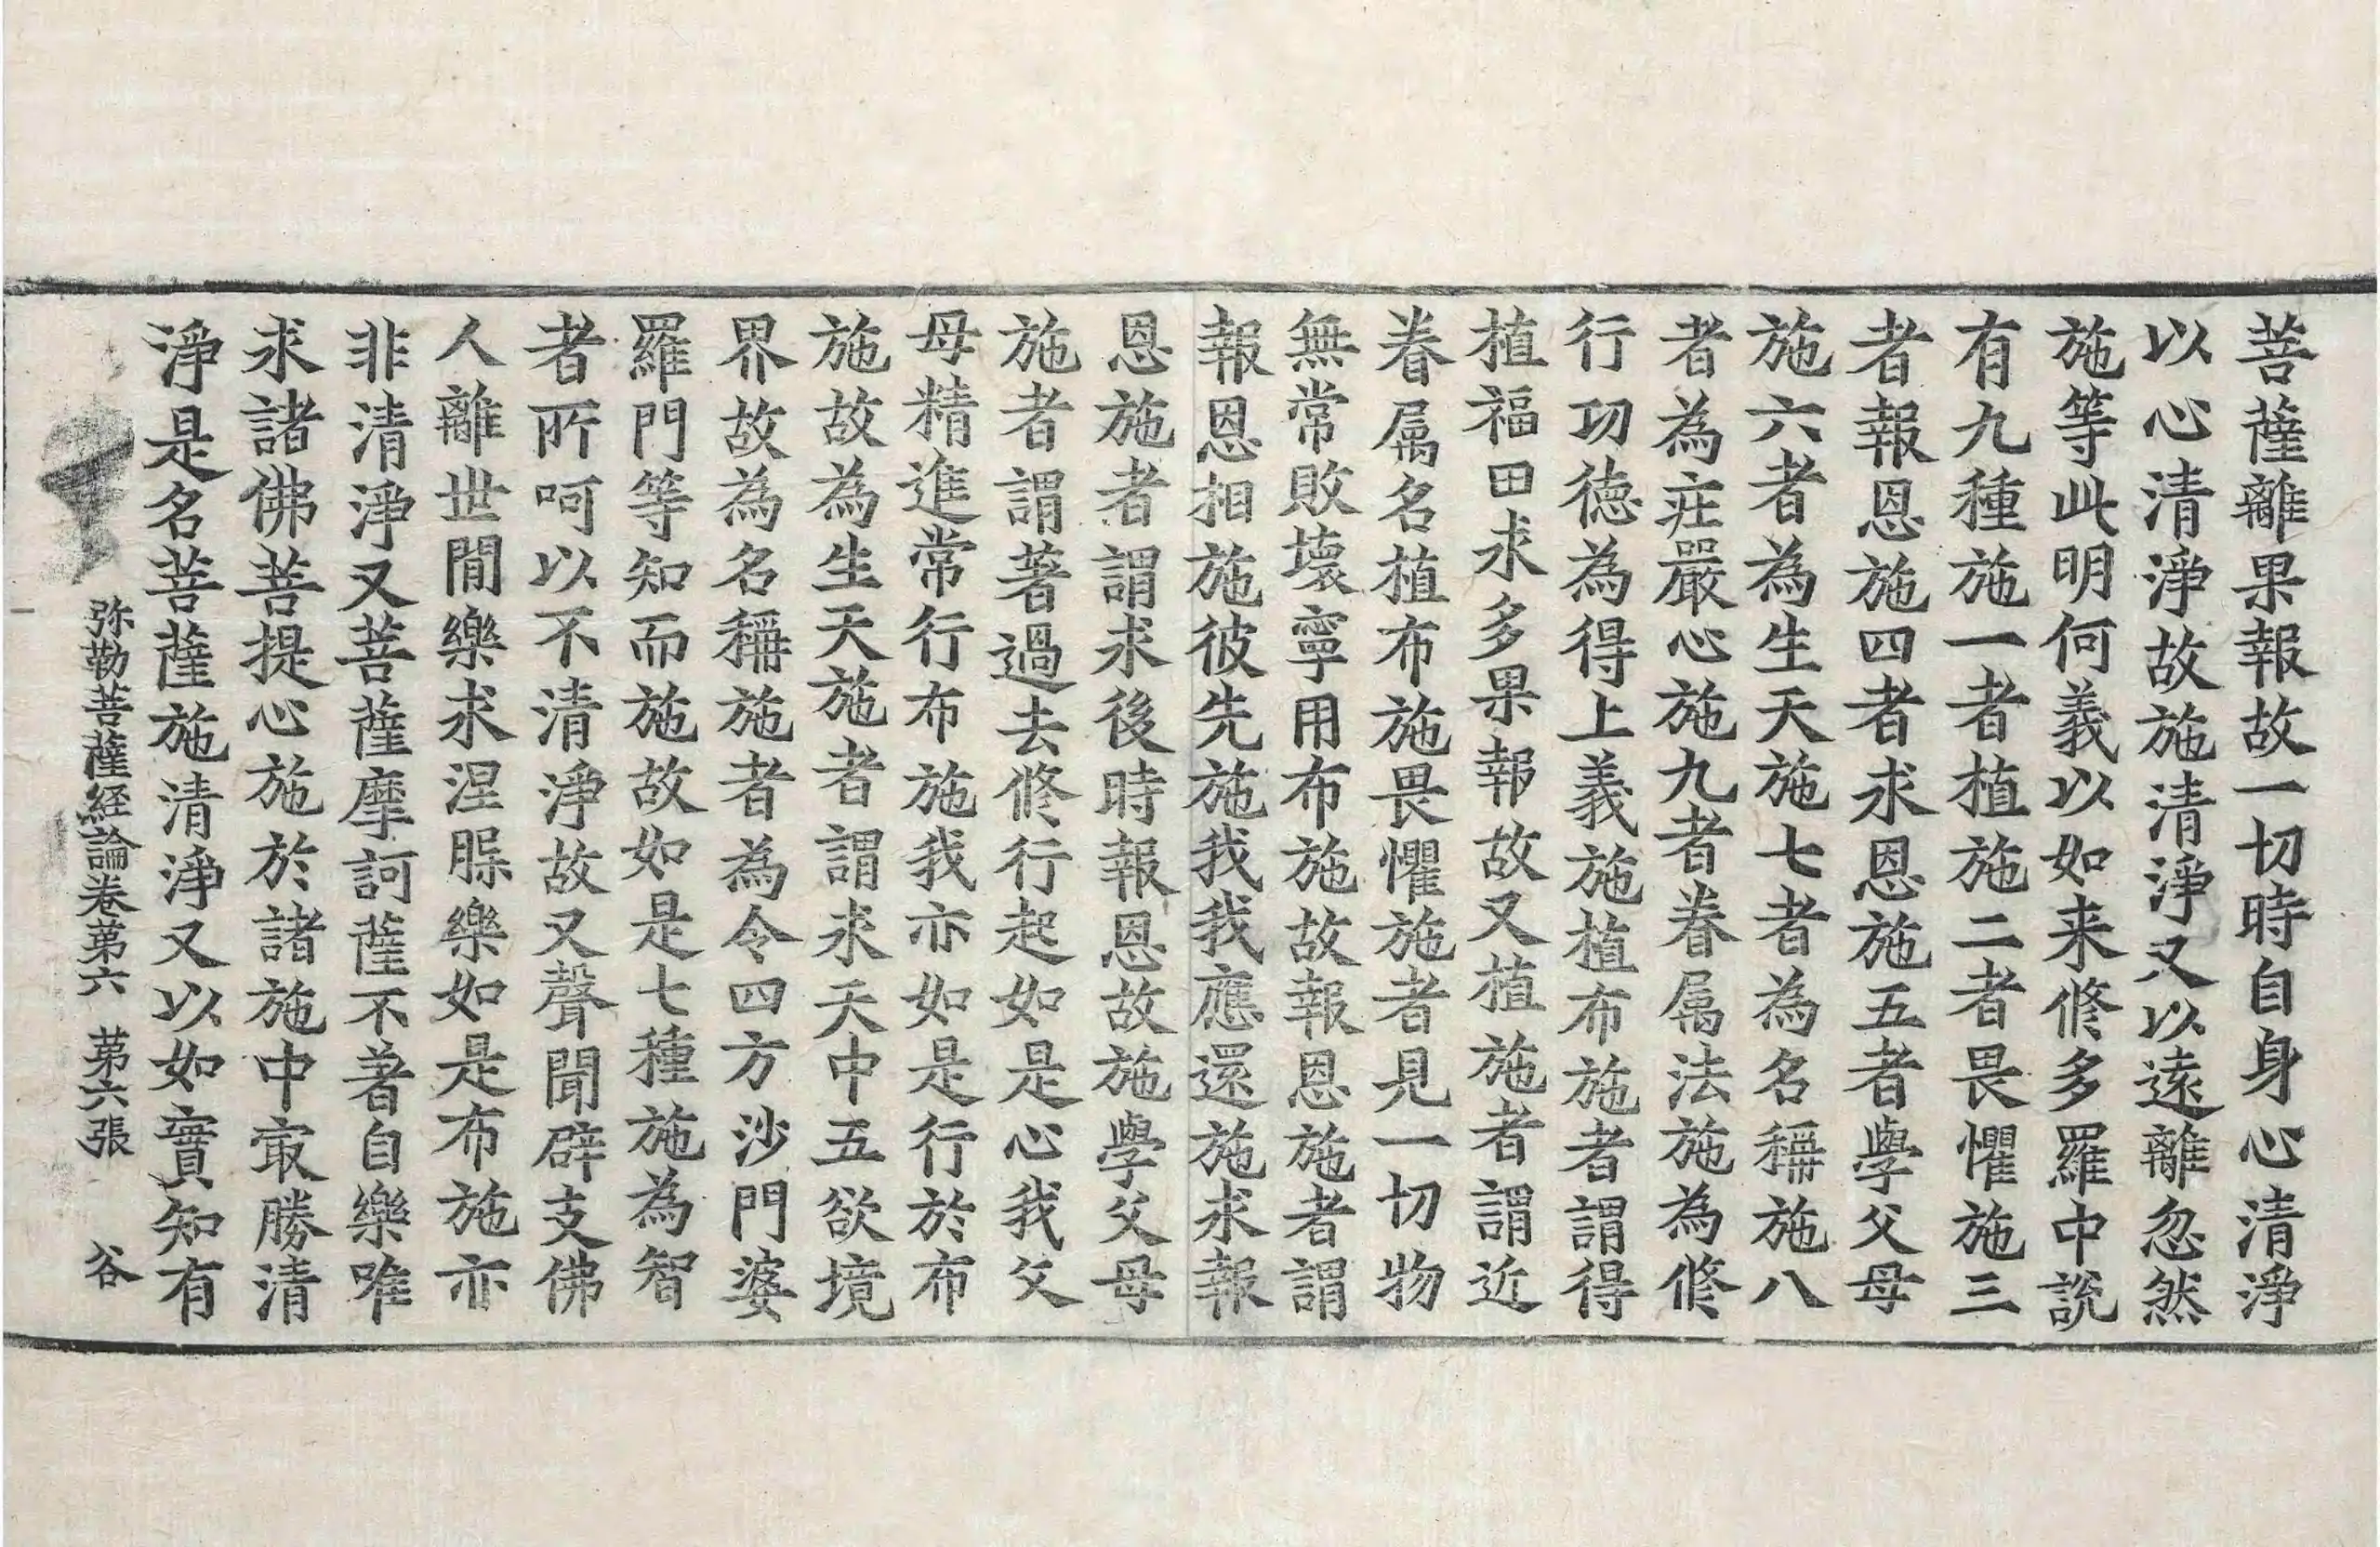 菩薩離果報故一切時自身心清淨
以心清淨故施清淨又以遠離忽然
施等此明何義以如来修多羅中說
有九種施一者植施二者畏懼施三
者報恩施四者求恩施五者學父母
施六者為生天施七者為名稱施八
者為莊嚴心施九者眷属法施為修
行功德為得上義施植布施者謂得
植福田求多果報故又植施者謂近
眷属名植布施畏懼施者見一切物
無常敗壞寧用布施故報恩施者謂
報恩相施彼先施我我應還施求報
恩施者謂求後時報恩故施學父母
施者謂著過去修行起如是心我父
母精進常行布施我亦如是行於布
施故為生天施者謂求天中五欲境
界故為名稱施者為令四方沙門婆
羅門等知而施故如是七種施為智
者所呵以不清淨故又聲聞辟支佛
人離世間樂求涅槃樂如是布施亦
非清淨又菩薩摩訶薩不著自樂唯
求諸佛菩提心施於諸施中㝡勝清
淨是名菩薩施清淨又以如實知有
弥勒菩薩経論卷苐六 苐六張 谷